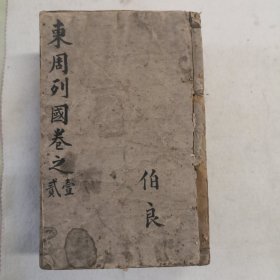 東周列國卷之壹
貳
伯良